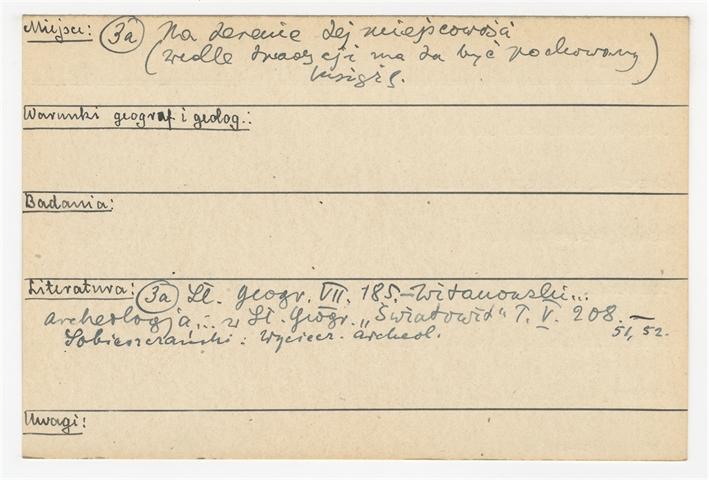 Miejsce: (3a) Na terenie tej miejscowości
(wedle tradycji ma tu być pochowany)
książę.
Warunki geograf i geolog.:
Badania:
Literatura: (3a) Sł. geogr. VII. 185. – Witanowski...
archeologja... w Sł. Geogr. „Światowit" T. V. 208. –
Sobieszczański: Wyciecz. archeol. 51, 52.
Uwagi: